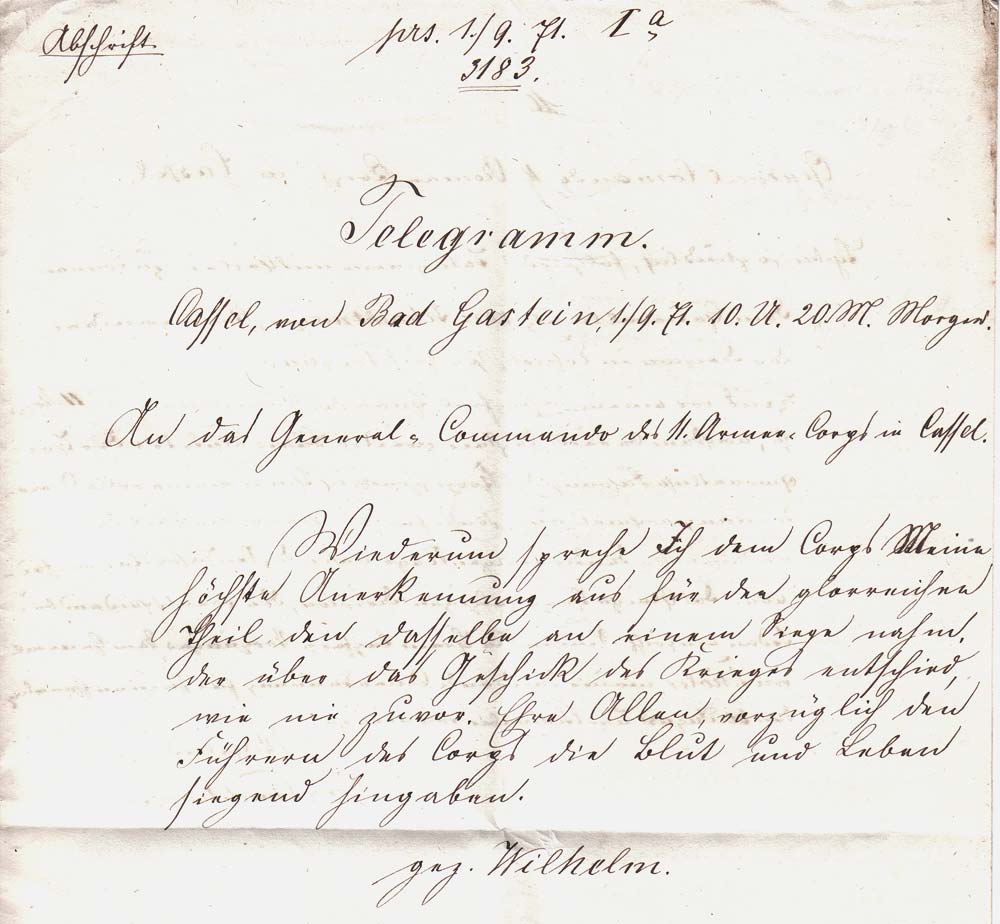 Abschrift
prs. 1./9. 71. Iª
3183.
Telegramm.
Cassel, von Bad Gastein, 1./9. 71. 10. U. 20. M. Morgens.
An das General-Commando des 11. Armee-Corps in Cassel.
Wiederum spreche Ich dem Corps Meine
höchste Anerkennung aus für den glorreichen
Theil den dasselbe an einem Siege nahm,
der über das Geschick des Krieges entschied,
wie nie zuvor. Ehre Allen, vorzüglich den
Führern des Corps die Blut und Leben
siegend hingaben.
gez. Wilhelm.